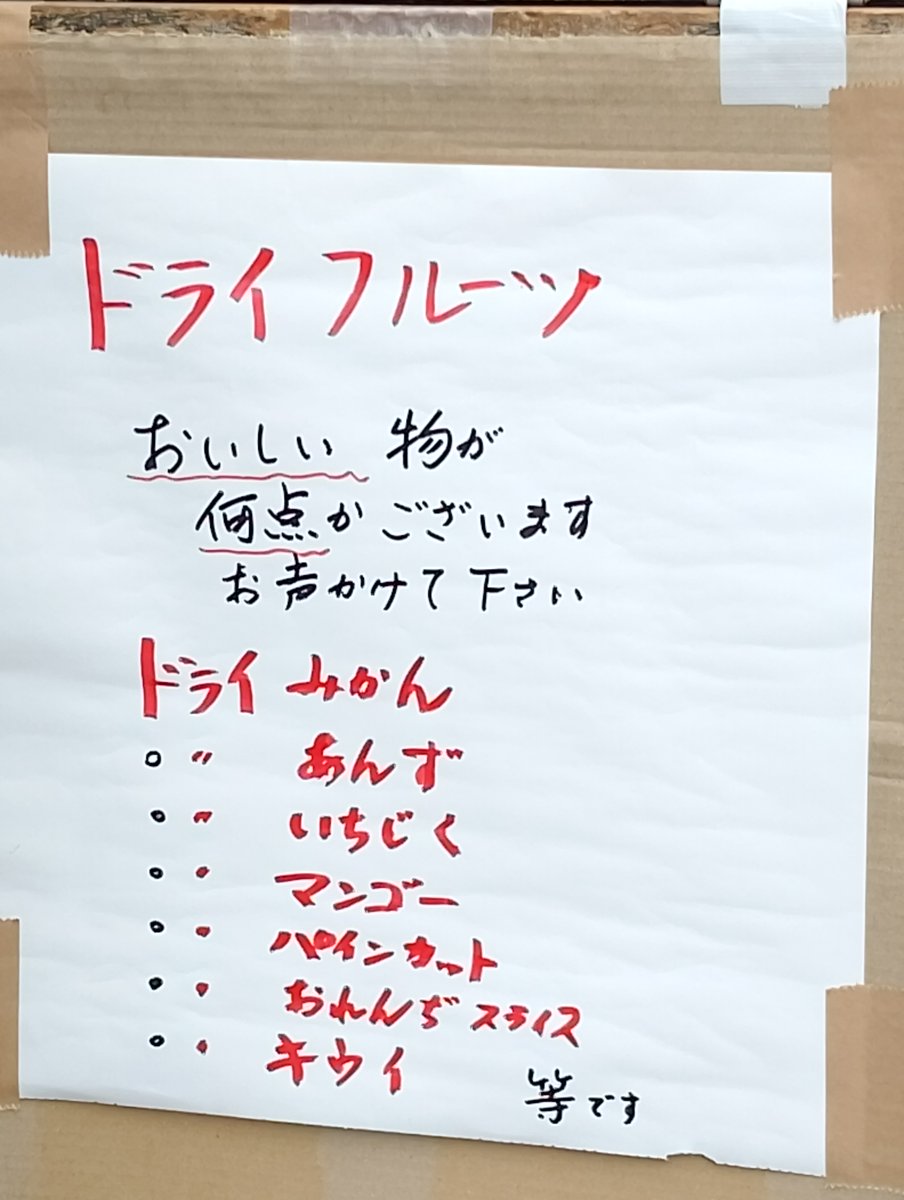 ドライフルーツ
おいしい 物が
何点かございます
お声かけて下さい
ドライ みかん
○ 〃 あんず
○ 〃 いちじく
○ 〃 マンゴー
○ 〃 パインカット
○ 〃 おれんぢスライス
○ 〃 キウイ 等です